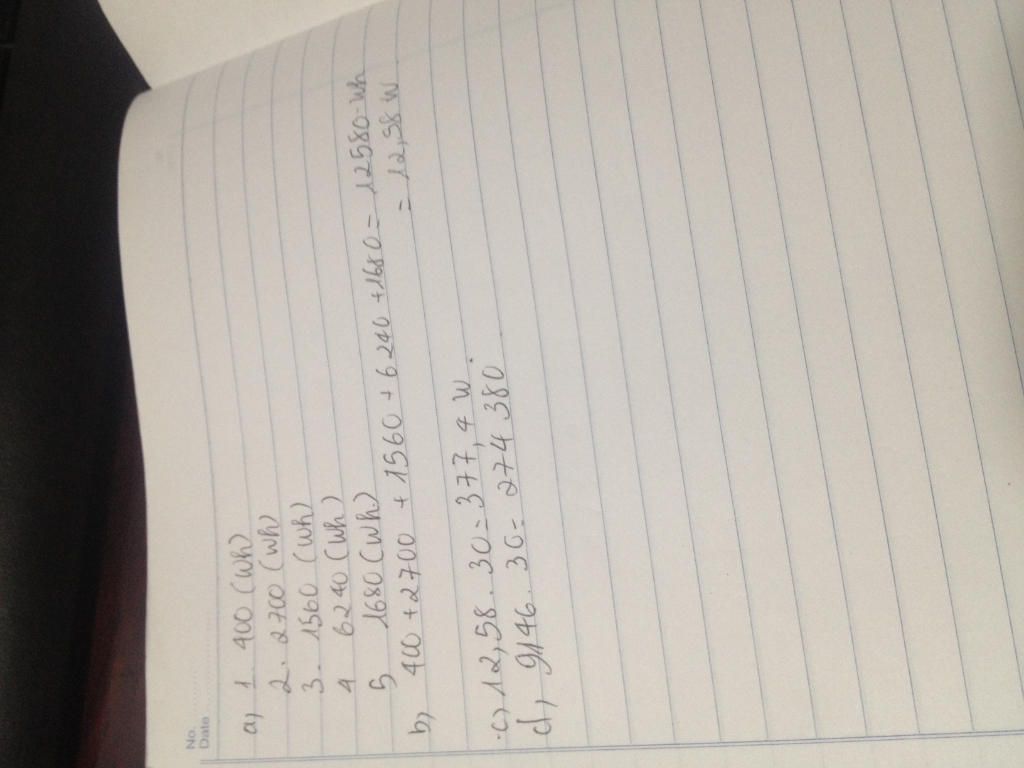 No.
Date
a) 1. 400 (Wh)
2. 2700 (Wh)
3. 1560 (Wh)
4 6240 (Wh)
5 1680 (Wh)
b) 400 + 2700 + 1560 + 6240 + 1680 = 12580 Wh
= 12,58 W
c) 12,58 . 30 = 377,4 W.
d) 9146. 30 = 274 380